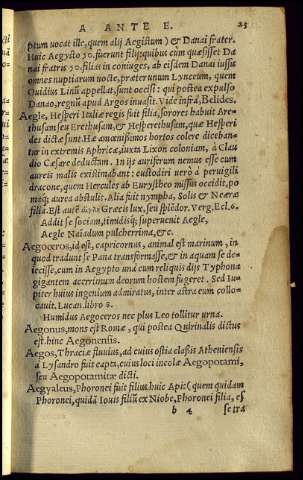 A ANTE E. 23
ptum uocat ille, quem alij Aegistum) & Danai frater.
Huic Aegysto 50. fuerunt filij: quibus cùm quæsisset Da
nai fratris 50. filias in coniuges, ab eisdem Danai iussis
omnes nuptiarum nocte, præter unum Lynceum, quem
Ouidius Linũ appellat, sunt occisi: qui postea expulso
Danao, regnũ apud Argos inuasit. Vide infrà, Belides.
Aegle, Hesperi Italiæ regis fuit filia, sorores habuit Are
thusam seu Erethusam, & Hesperethusam, quæ Hesperi
des dictæ sunt. Hæ amœnissimos hortos colere diceban
tur in extremis Aphricæ, iuxta Lixon coloniam, à Clau
dio Cæsare deductam. In ijs auriferum nemus esse cum
aureis malis existimabant: custodiri uerò à peruigili
dracone, quem Hercules ab Eurystheo missus occidit, po
maq; aurea abstulit. Alia fuit nympha, Solis & Neæræ
filia. Est autẽ Græcis lux, seu splẽdor. Verg. Eclo.
Addit se sociam, timidisq; superuenit Aegle,
Aegle Naiadum pulcherrima, &c.
Aegoceros, id est, capricornus, animal est marinum, in
quod tradunt se Pana transformasse, & in aquam se de
iecisse, cum in Aegypto unà cum reliquis dijs Typhona
gigantem acerrimum deorum hostem fugeret. Sed Iup
piter huius ingenium admiratus, inter astra eum collo
cauit. Lucan. libro 9.
Humidus Aegoceros nec plus Leo tollitur urna.
Aegonus, mons est Romæ, qui postea Quirinalis dictus
est. hinc Aegonensis.
Aegos, Thraciæ fluuius, ad cuius ostia classis Atheniensis
à Lysandro fuit capta, cuius loci incolæ Aegopotami,
seu Aegopotamitæ dicti.
Aegyaleus, Phoronei fuit filius. huic Api (quem quidam
Phoronei, quidã Iouis filiũ ex Niobe, Phoronei filia, es
b 4 se tra